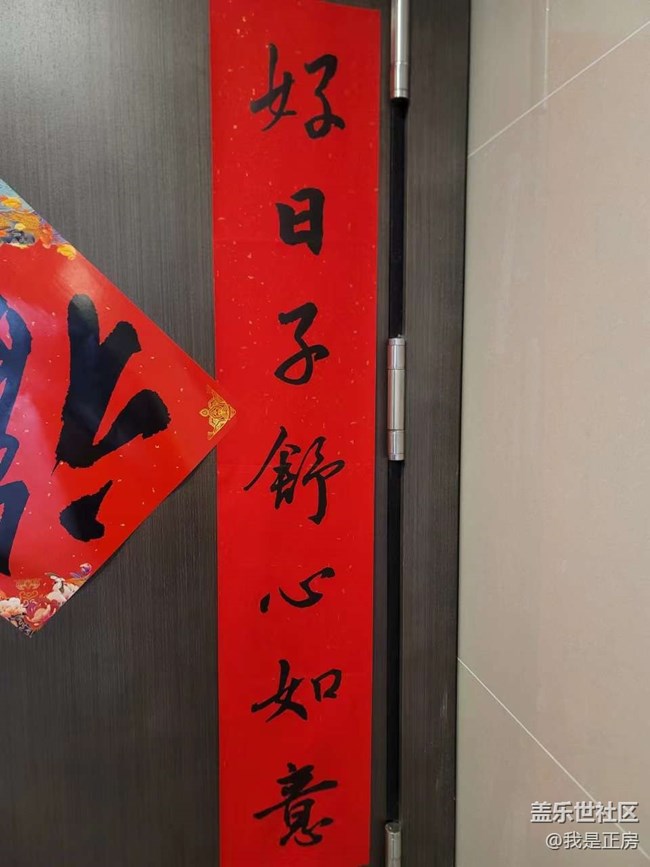 好日子舒心如意
盖乐世社区
@我是正房